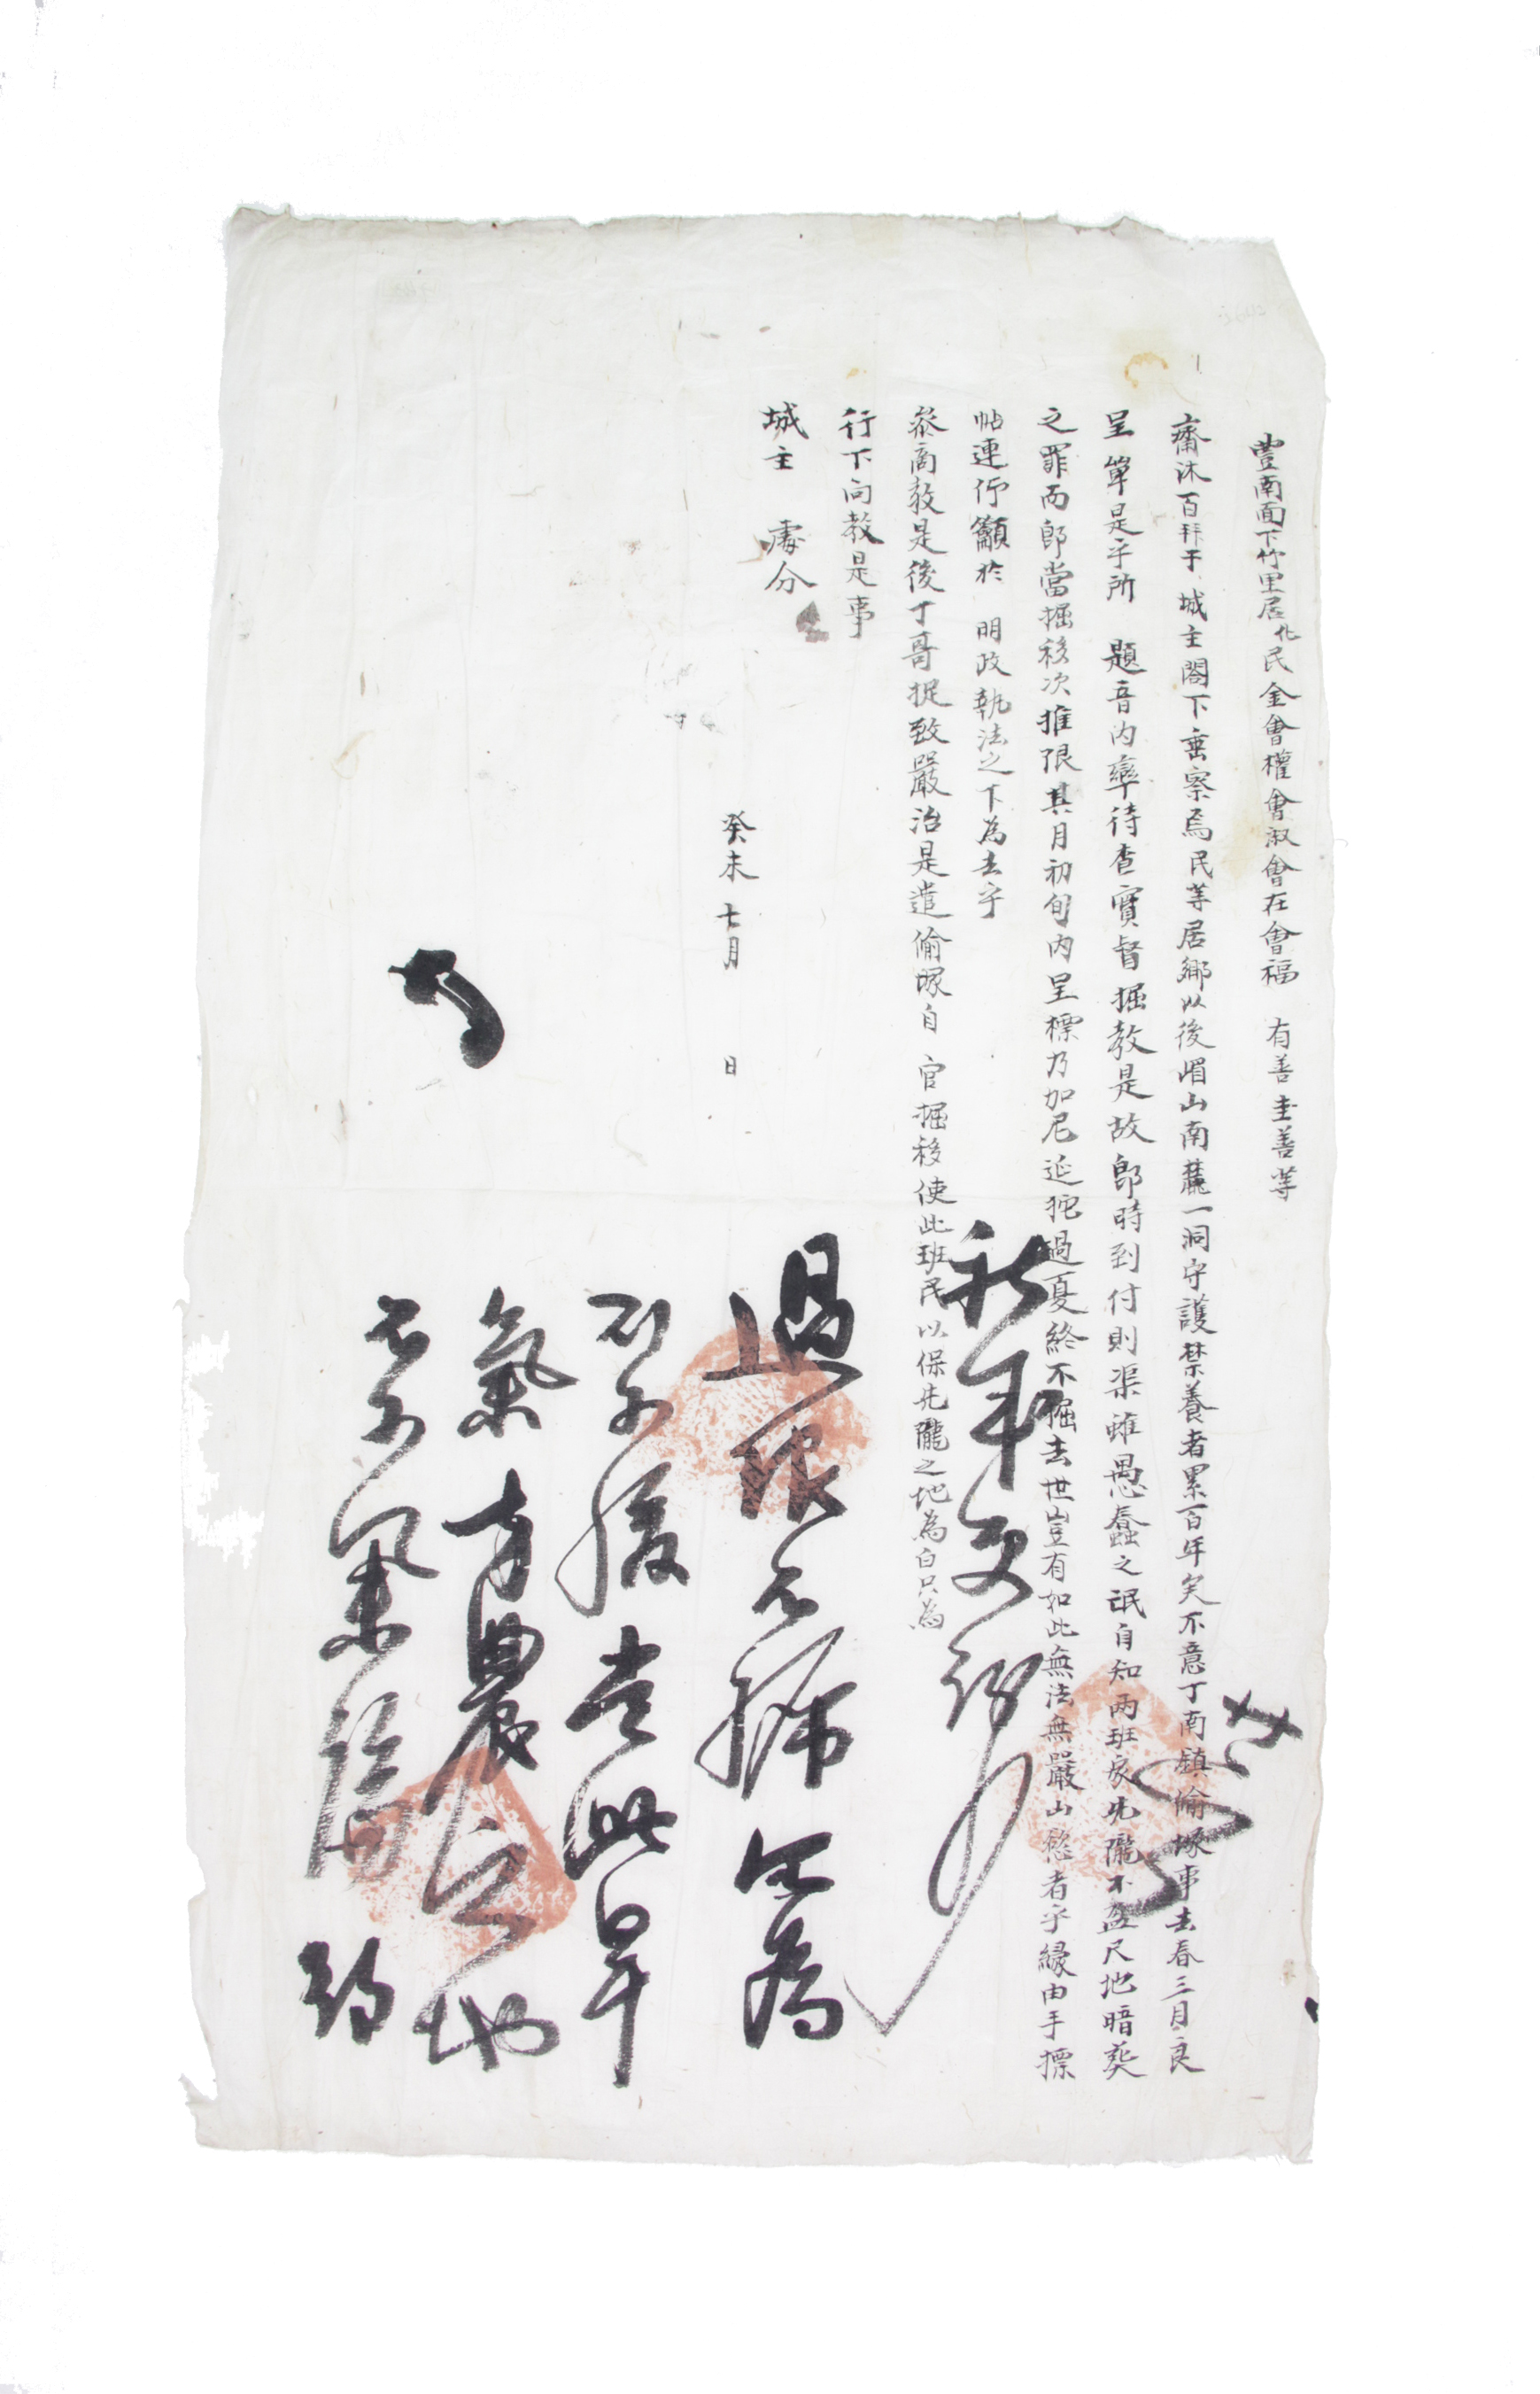 豊南面下竹里居化民金會權會淑會在會福 有善圭善等
齋沐百拜于 城主閤下垂察焉民等居鄕以後嵋山南麓一洞守護禁養者累百年矣不意丁南鎭偸塚事去春三月良
呈單是乎所 題音內率待査實督掘敎是故卽時到付則渠雖愚蠢之氓自知兩班家先隴不盈尺地暗葬
之罪而卽當掘移次推限其月初旬內呈標乃加尼延拖過夏終不掘去世豈有如此無法無嚴山慾者乎緣由手標
帖連仰籲於 明政執法之下爲去乎
叅商敎是後丁哥捉致嚴治是遣偸塚自 官掘移使此班民以保先隴之地爲白只爲
行下向敎是事
城主 處分
癸未 七月 日
過限不掃
此旱
氣方農